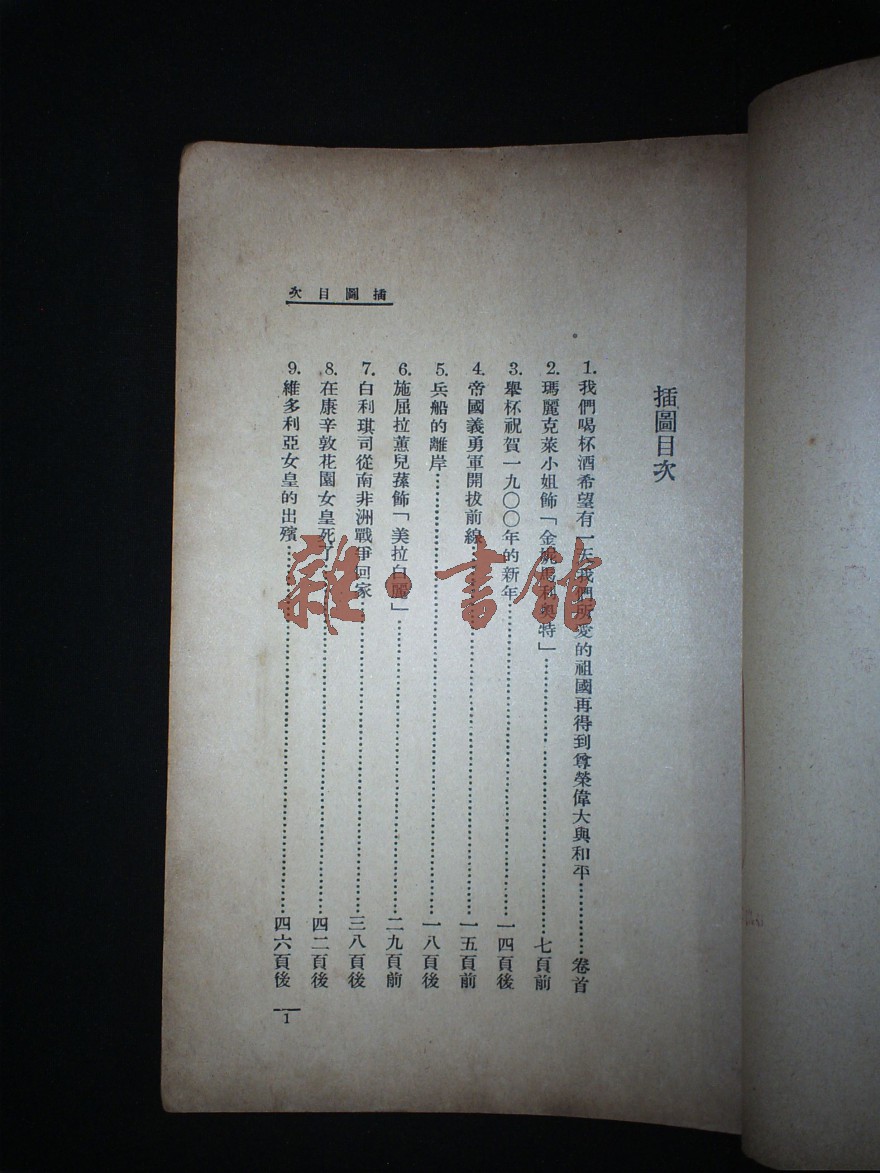 插圖目次
1. 我們喝杯酒希望有一天我們所愛的祖國再得到尊榮偉大與和平…………卷首
2. 瑪麗克萊小姐飾「金妮馬利奧特」…………七頁前
3. 舉杯祝賀一九〇〇年的新年…………一四頁後
4. 帝國義勇軍開拔前線…………一五頁前
5. 兵船的離岸…………一八頁後
6. 施屈拉薰兒蓀飾「美拉白麗」…………二九頁前
7. 白利琪司從南非洲戰爭回家…………三八頁後
8. 在康辛敦花園女皇死了…………四二頁後
9. 維多利亞女皇的出殯…………四六頁後
插圖目次
1
雜·書館